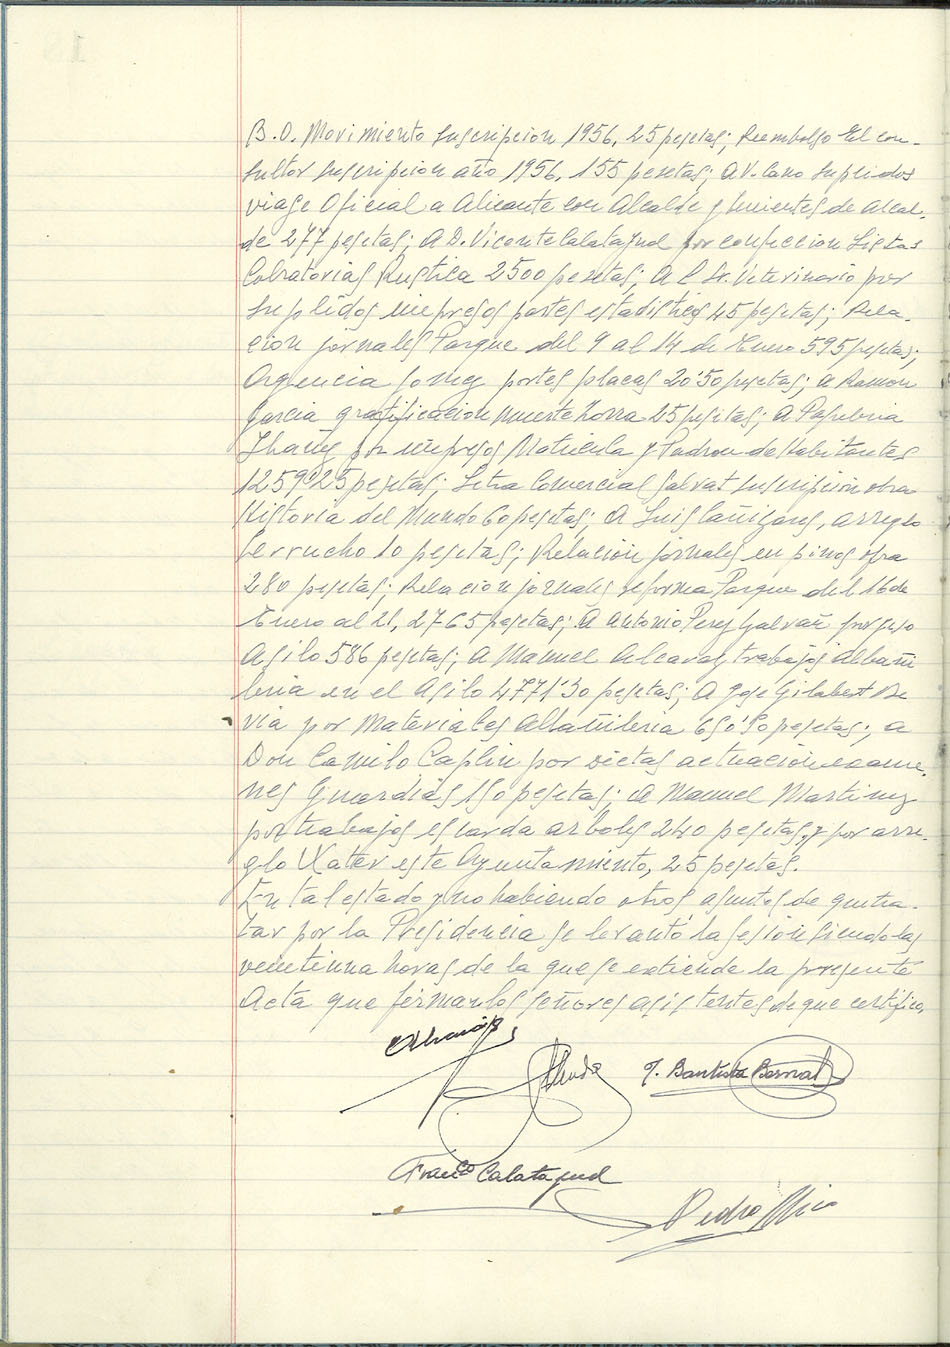 B.O. Movimiento suscripcion 1956, 25 pesetas; Reembolso El con-
sultor suscripcion año 1956, 155 pesetas; a V. Cano suplidos
viage Oficial a Alicante con Alcalde y tenientes de Alcal-
de 277 pesetas; A D. Vicente Calatayud por confeccion Listas
Cobratorias Rustica 2500 pesetas; A l Sr. Veterinario por
suplidos impresos partes estadistics 45 pesetas; Rela-
cion jornales Parque del 9 al 14 de Enero 595 pesetas;
Agencia Gomez portes placas 20'50 pesetas; a Ramon
Garcia gratificacion muerte zorra 25 pesetas; A Papeleria
Ibañez por impresos Matricula y Padron de Habitantes
1259'25 pesetas; Letra Comercial Salvat suscripcion obra
Historia del Mundo 60 pesetas; A Luis Cañizares, arreglo
Serrucho 10 pesetas; Relacion jornales en pinos
280 pesetas; Relacion jornales reforma Parque del 16 de
Enero al 21, 2765 pesetas; A Antonio Perez Galvañ por
Asilo 586 pesetas; A Manuel Alcaraz trabajos Albañi
leria en el Asilo 4771'30 pesetas; A Jose Gilabert Be
via por Materiales Albañileria 650'90 pesetas; a
Don Camilo Caplin por dietas actuacion exame-
nes Guardias 150 pesetas; a Manuel Martinez
por trabajos escarda arboles 240 pesetas, y por arre-
glo Vater este Ayuntamiento, 25 pesetas.
En tal estado y no habiendo otros asuntos de que tra-
tar por la Presidencia se levantó la sesion siendo las
veintiuna horas de la que se extiende la presente
Acta que firman los señores asistentes de que certifico,
J. Bautista Bernat
Franco Calatayud
Pedro Mico